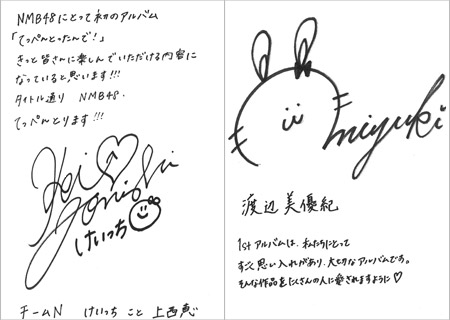 NMB48にとって初のアルバム
「てっぺんとったんで！」
きっと皆さんに楽しんでいただける内容に
なっていると思います!!!
タイトル通り NMB48.
てっぺんとります!!!
Kei Jonishi
けいっち
チームN けいっち こと 上西恵
miyuki
渡辺美優紀
1stアルバムは、私たちにとって
すごく思い入れがあり、大切なアルバムです。
そんな作品をたくさんの人に愛されますように♡